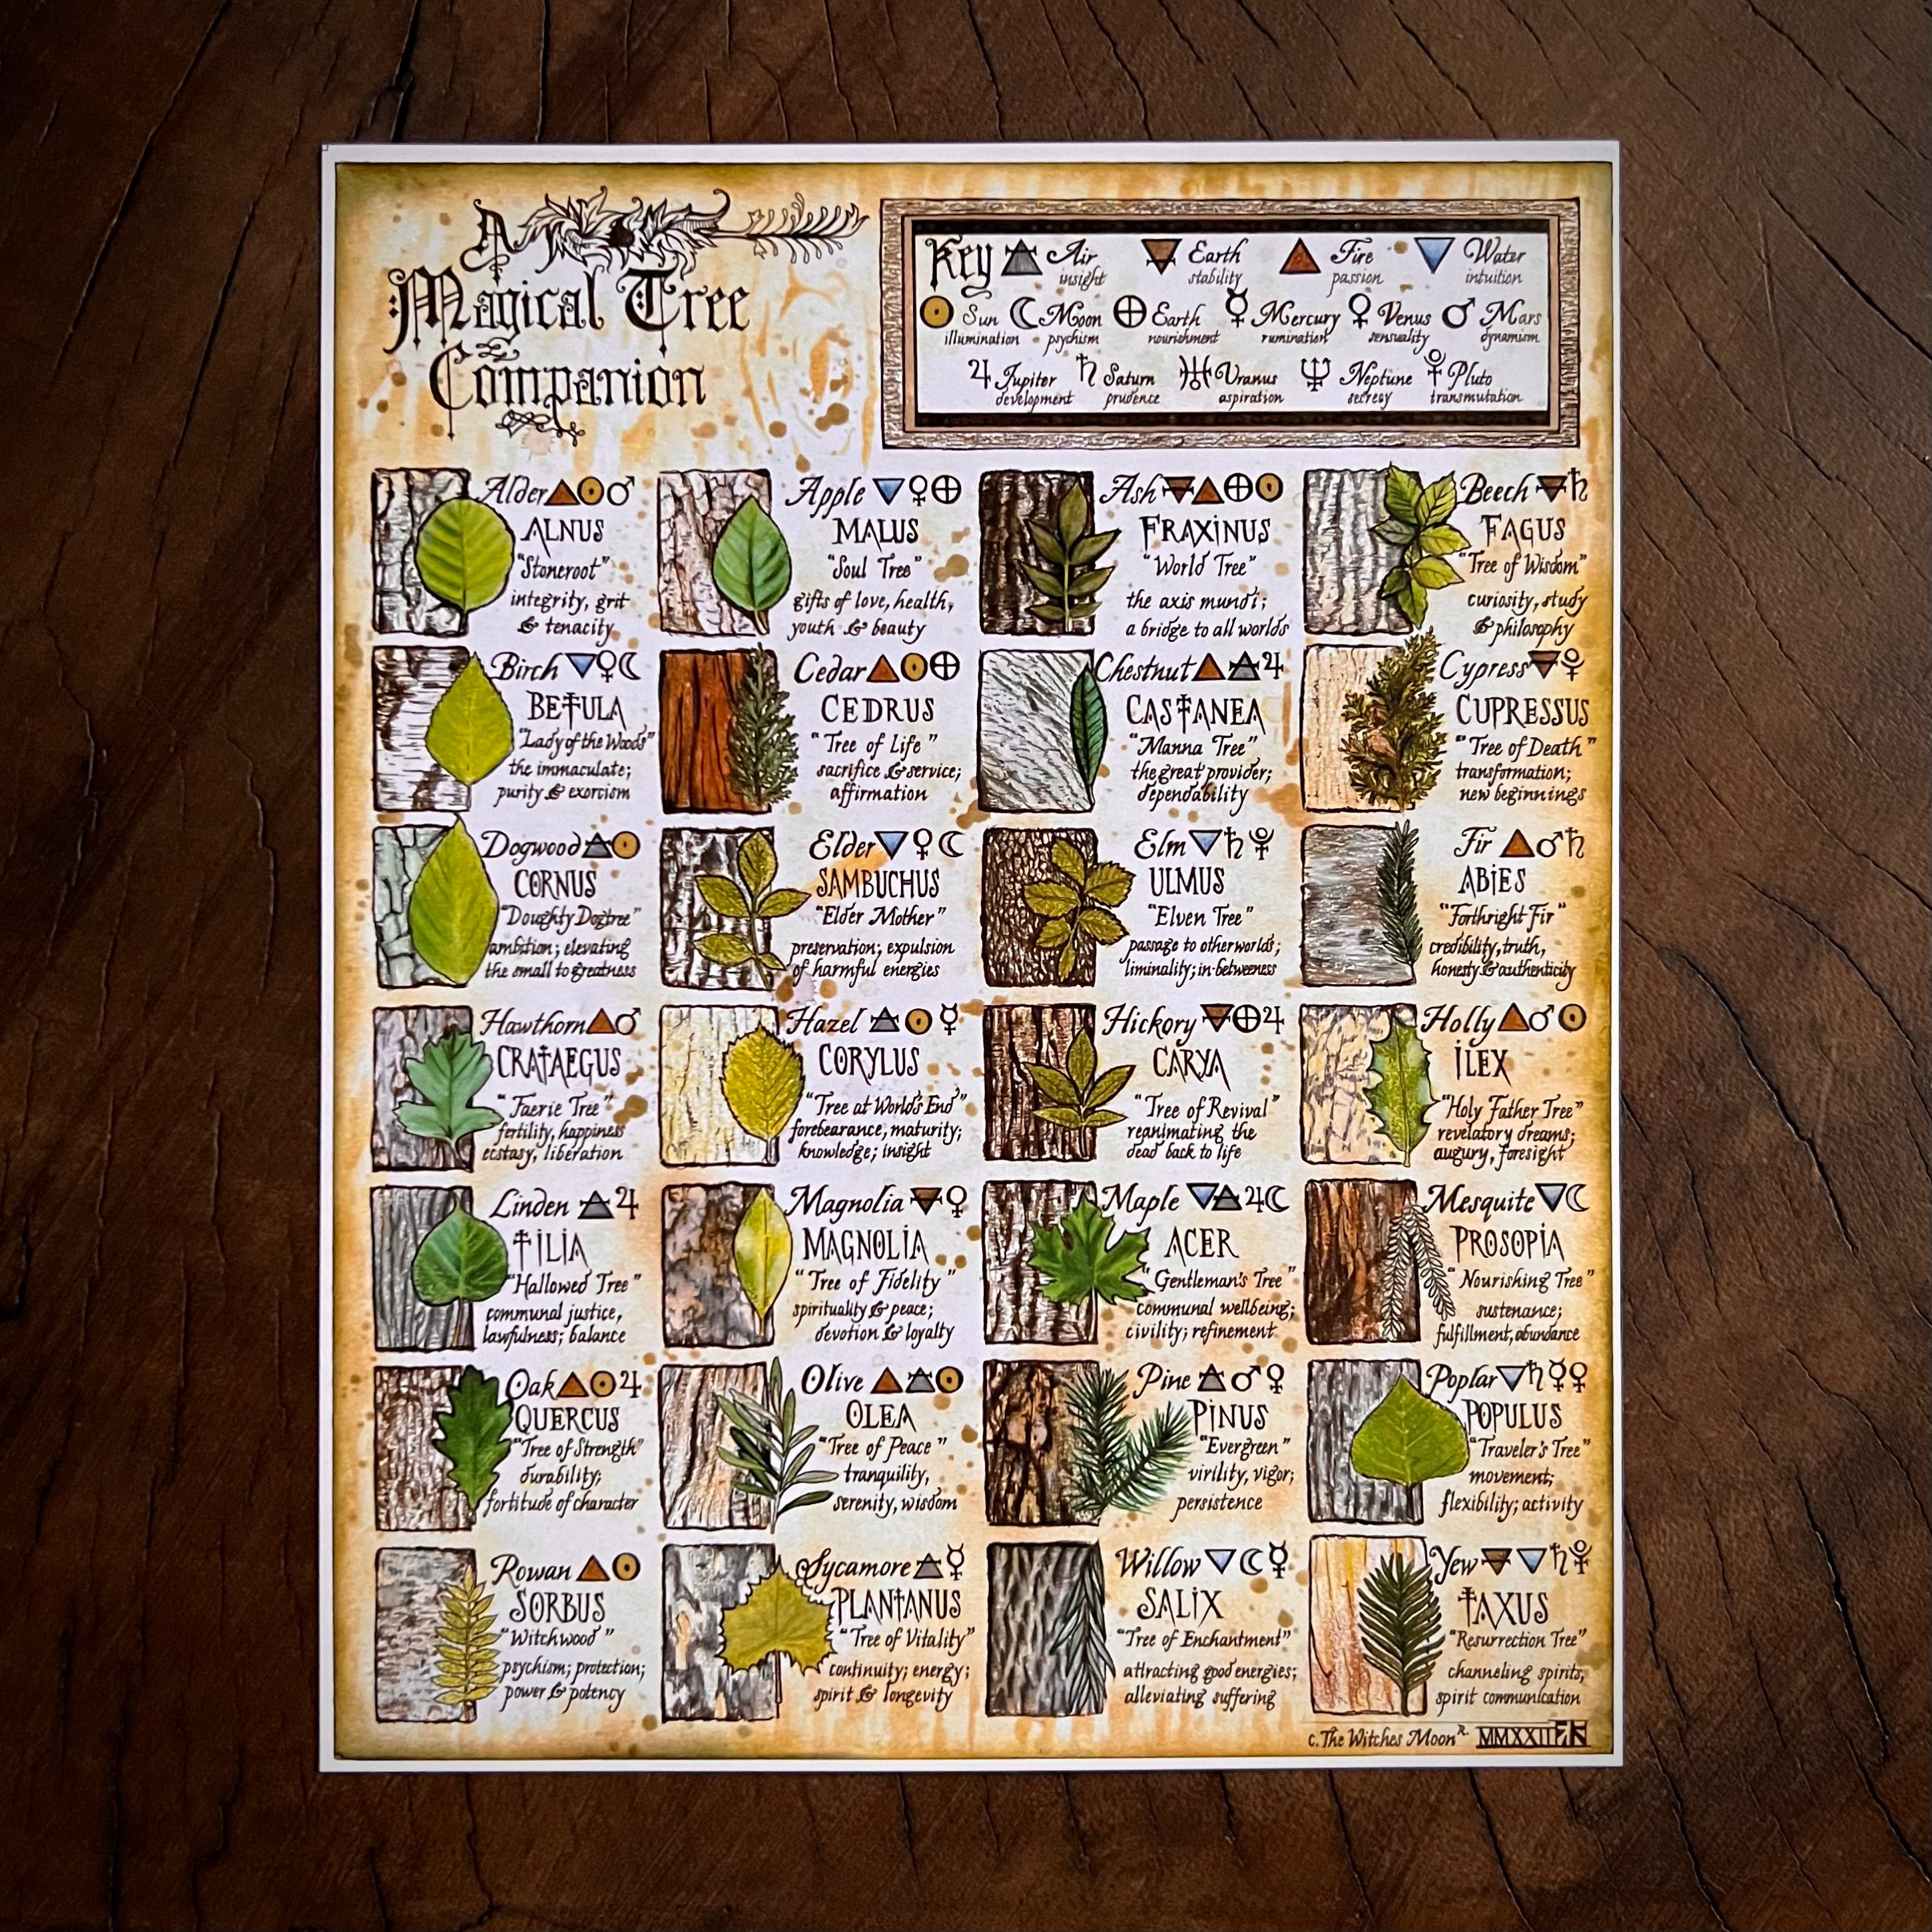 A
Magical Tree
Companion
Key Air Earth Fire Water
insight stability passion intuition
Sun Moon Earth Mercury Venus Mars
illumination psychism nourishment rumination sensuality dynamism
Jupiter Saturn Uranus Neptune Pluto
development prudence aspiration secresy transmutation
Alder
ALNUS
"Stoneroot"
integrity, grit
& tenacity
Apple
MALUS
"Soul Tree"
gifts of love, health,
youth & beauty
Ash
FRAXINUS
"World Tree"
the axis mundi;
a bridge to all worlds
Beech
FAGUS
"Tree of Wisdom"
curiosity, study
& philosophy
Birch
BETULA
"Lady of the Woods"
the immaculate;
purity & exorcism
Cedar
CEDRUS
"Tree of Life"
sacrifice & service;
affirmation
Chestnut
CASTANEA
"Manna Tree"
the great provider;
dependability
Cypress
CUPRESSUS
"Tree of Death"
transformation;
new beginnings
Dogwood
CORNUS
"Doughty Dogtree"
ambition; elevating
the small to greatness
Elder
SAMBUCHUS
"Elder Mother"
preservation; expulsion
of harmful energies
Elm
ULMUS
"Elven Tree"
passage to otherworlds;
liminality; in-betweeness
Fir
ABIES
"Forthright Fir"
credibility, truth,
honesty & authenticity
Hawthorn
CRATAEGUS
"Faerie Tree"
fertility, happiness
ecstasy, liberation
Hazel
CORYLUS
"Tree at World's End"
forebearance, maturity;
knowledge; insight
Hickory
CARYA
"Tree of Revival"
reanimating the
dead back to life
Holly
ILEX
"Holy Father Tree"
revelatory dreams;
augury, foresight
Linden
TILIA
"Hallowed Tree"
communal justice,
lawfulness; balance
Magnolia
MAGNOLIA
"Tree of Fidelity"
spirituality & peace;
devotion & loyalty
Maple
ACER
"Gentleman's Tree"
communal wellbeing;
civility; refinement
Mesquite
PROSOPIA
"Nourishing Tree"
sustenance;
fulfillment, abundance
Oak
QUERCUS
"Tree of Strength"
durability;
fortitude of character
Olive
OLEA
"Tree of Peace"
tranquility,
serenity, wisdom
Pine
PINUS
"Evergreen"
virility, vigor;
persistence
Poplar
POPULUS
"Traveler's Tree"
movement;
flexibility; activity
Rowan
SORBUS
"Witchwood"
psychism; protection;
power & potency
Sycamore
PLANTANUS
"Tree of Vitality"
continuity; energy;
spirit & longevity
Willow
SALIX
"Tree of Enchantment"
attracting good energies;
alleviating suffering
Yew
TAXUS
"Resurrection Tree"
channeling spirits,
spirit communication
c. The Witches Moon R. MMXXII